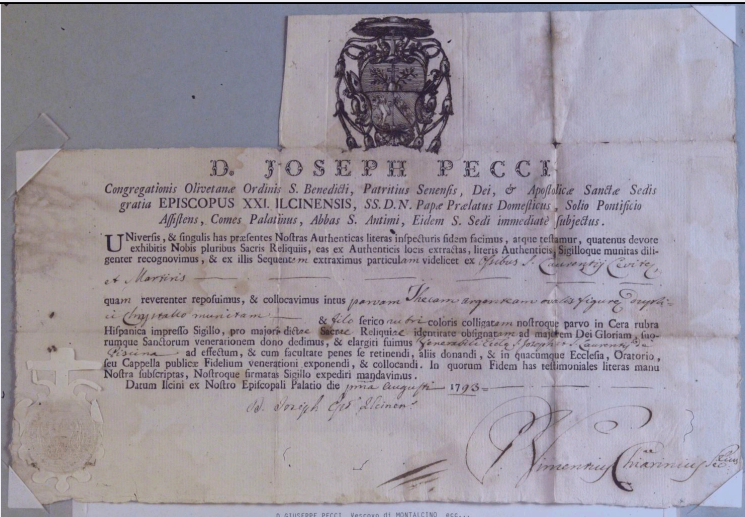 D. JOSEPH PECCI
Congregationis Olivetanæ Ordinis S. Benedicti, Patritius Senensis, Dei, & Apostolicæ Sanctæ Sedis
gratia EPISCOPUS XXI. ILCINENSIS, SS. D. N. Papæ Prælatus Domesticus, Solio Pontificio
Assistens, Comes Palatinus, Abbas S. Antimi, Eidem S. Sedi immediatè subjectus.
UNiversis, & singulis has præsentes Nostras Authenticas literas inspecturis fidem facimus, atque testamur, quatenus devore
exhibitis Nobis pluribus Sacris Reliquiis, eas ex Authenticis locis extractas, literis Authenticis, Sigilloque munitas dili-
genter recognovimus, & ex illis Sequentem extraximus particulam videlicet ex Ossibus S. Laurentij Levite,
et Martiris
quam reverenter reposuimus, & collocavimus intus parvam Thecam argenteam ovalis figure dupli-
ci Chrystallo munitam
& filo serico rubri coloris colligatam nostroque parvo in Cera rubra
Hispanica impresso Sigillo, pro majori dictæ Sacræ Reliquiæ identitate obsignatam ad majorem Dei Gloriam, suo-
rumque Sanctorum venerationem dono dedimus, & elargiti fuimus Venerabili Ecclæ S. Joseph
ad effectum, & cum facultate penes se retinendi, aliis donandi, & in quacumque Ecclesia, Oratorio,
seu Cappella publicæ Fidelium venerationi exponendi, & collocandi. In quorum Fidem has testimoniales literas manu
Nostra subscriptas, Nostroque firmatas Sigillo expediri mandavimus.
Datum Ilcini ex Nostro Episcopali Palatio die prima Augusti 1793
D. Joseph Eps Ilcinen
Chiarinius
D. GIUSEPPE PECCI, Vescovo di MONTALCINO